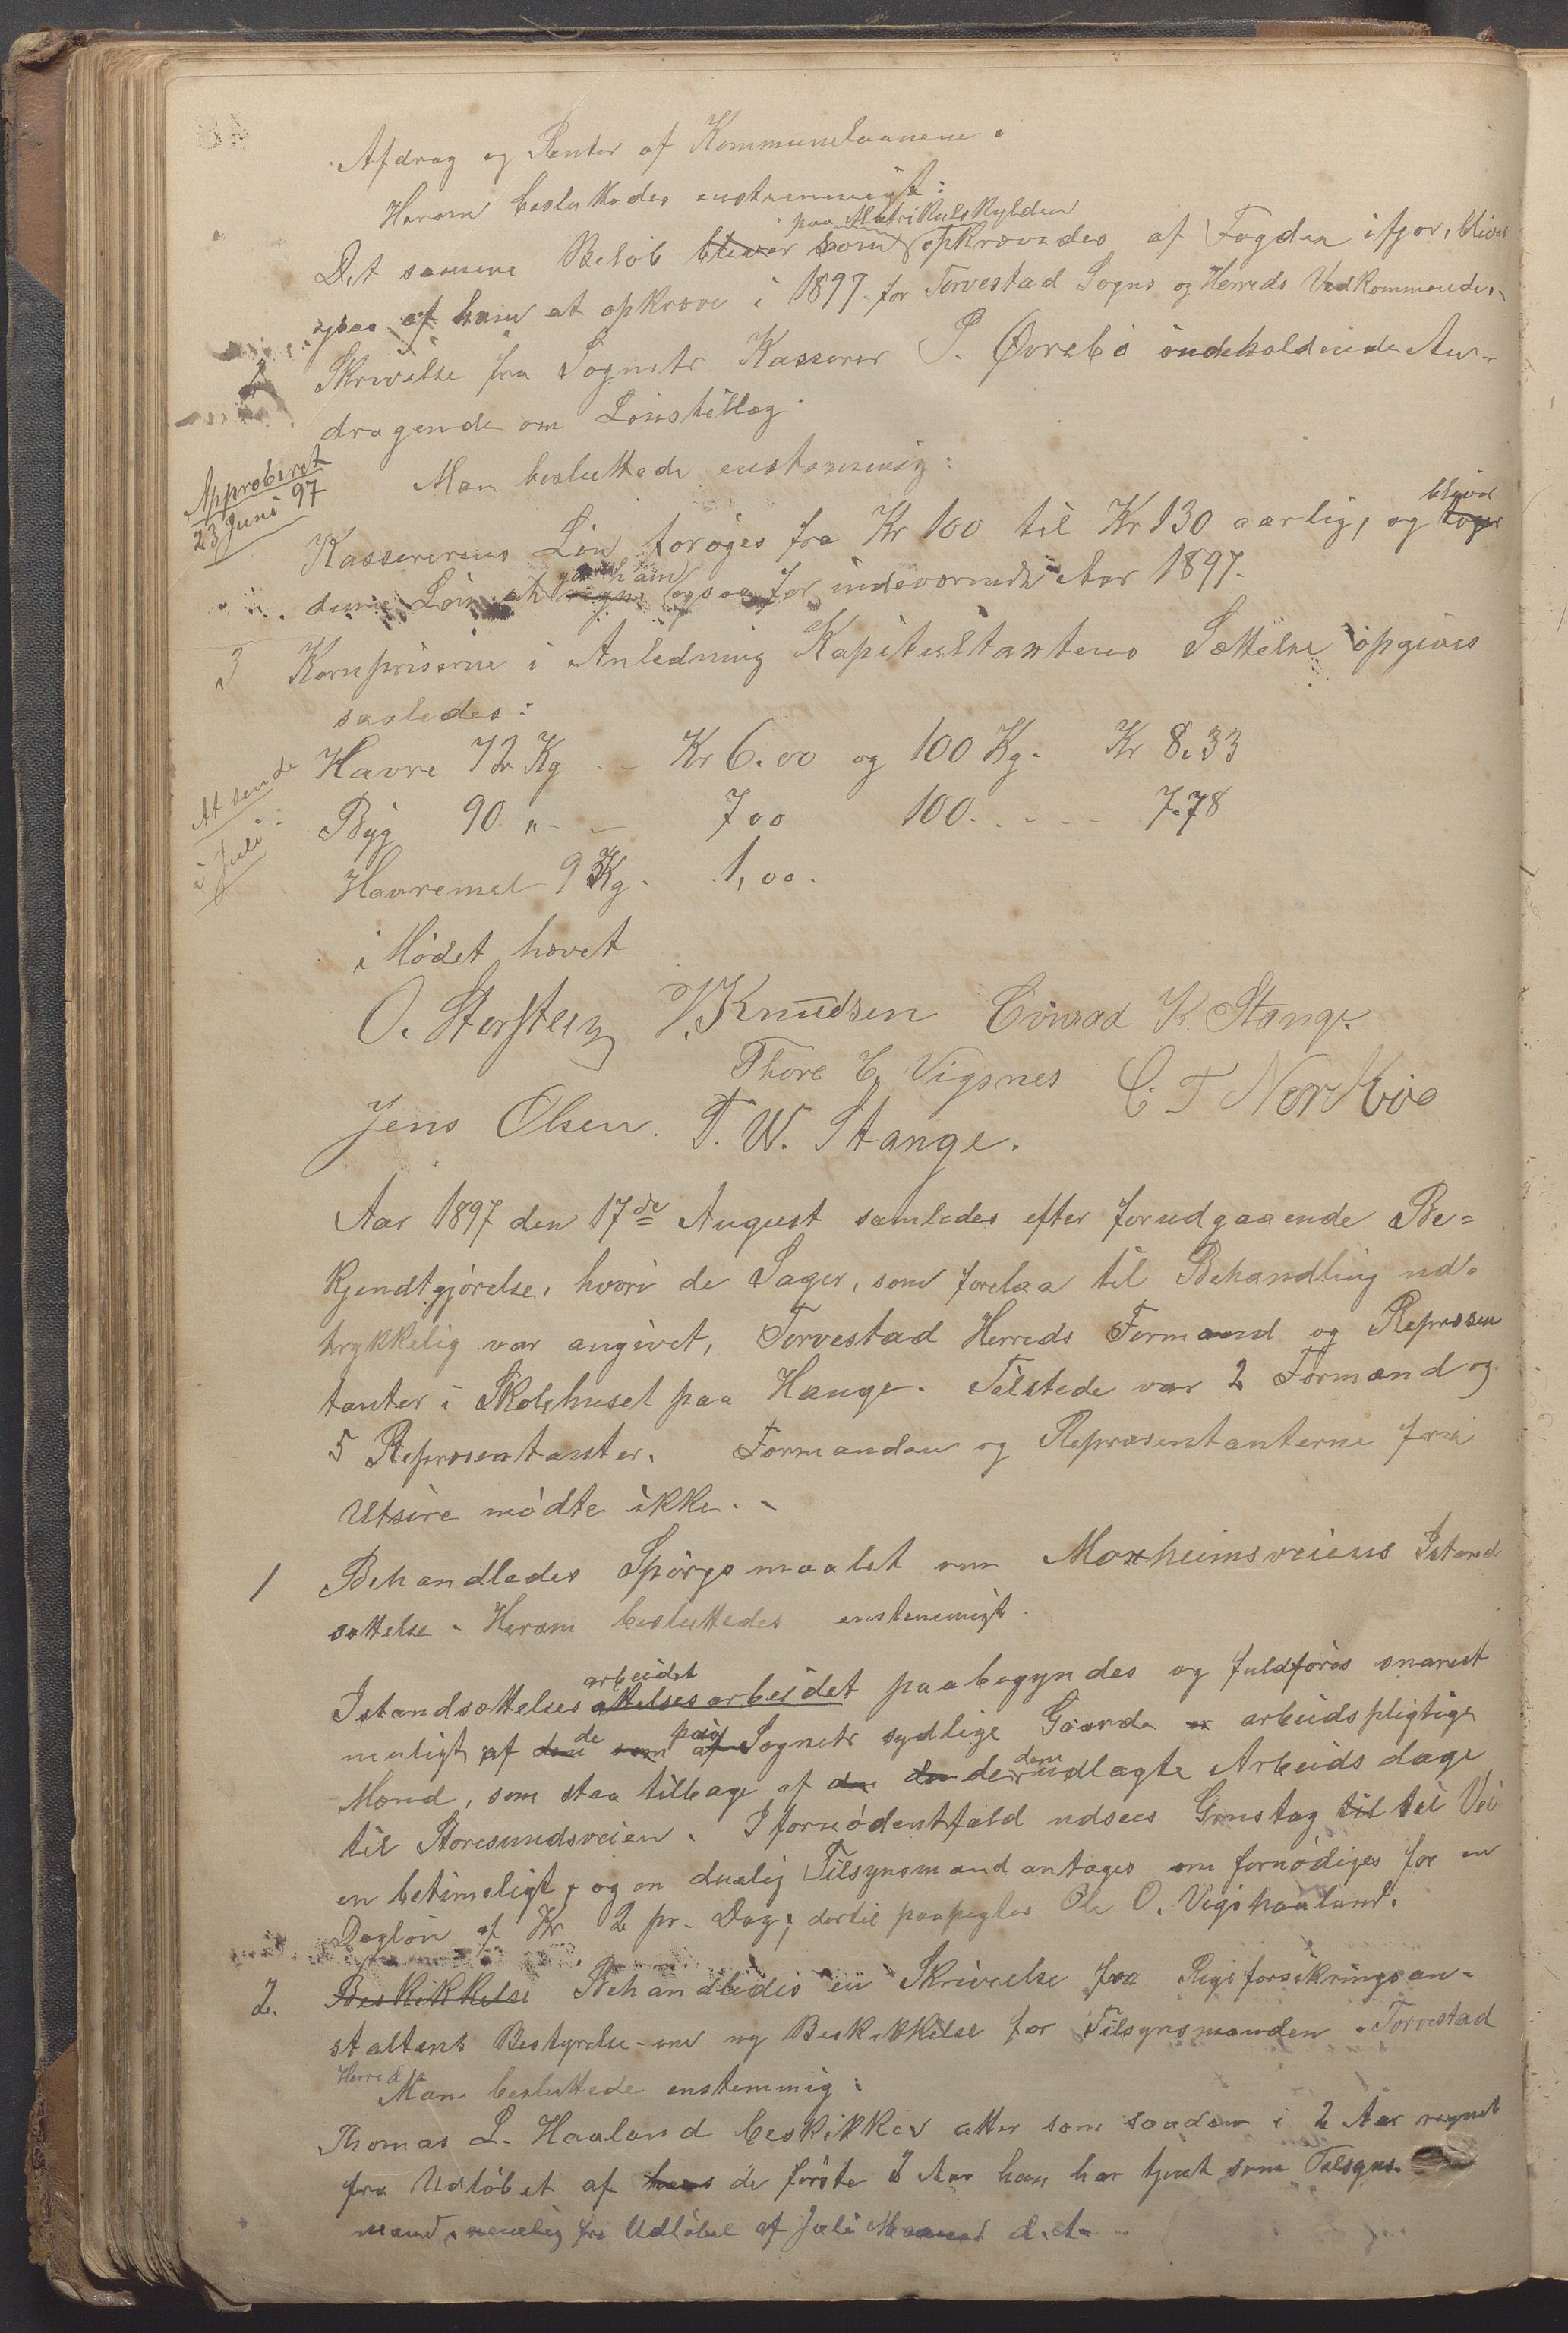 Afdrag og Renter af Kommunelaanene.
Herom besluttedes enstemmigt:
paa Matrikulskylden
Det samme Beløb bliver som opkrævedes af Fogden ifjor, bliver
ogsaa af ham at opkræve i 1897 for Torvestad Sogns og Herreds Vedkommende.
2 Skrivelse fra Sognets Kasserer P. Øvrebø indeholdende An-
dragende om Lønstillæg.
Man besluttede enstemmig:
Approberet
23 Juni 97
bliver
Kassererens Løn forøges fra Kr 100 til Kr 130 aarlig, og
ham
denne Løn at ogsaa for indeværende Aar 1897.
3 Kornpriserne i Anledning Kapitelstaxtens Sættelse opgives
saaledes:
Havre 72 Kg - Kr 6.00 og 100 Kg. Kr 8.33
At sende
i Juli
Byg 90 " - - 7 00 100. - - - 7.78
Havremel 9 Kg. 1,00.
Mødet hævet
O. Storstein V. Knudsen Conrad K. Stange.
Thore E. Vigsnes C. T Nordbøe
Jens Olsen. T. W. Stange.
Aar 1897 den 17de August samledes efter forudgaaende Be=
kjendtgjørelse, hvori de Sager, som forelaa til Behandling ud-
trykkelig var angivet, Torvestad Herreds Formænd og Repræsen
tanter i Skolehuset paa Hauge. Tilstede var 2 Formænd og
5 Repræsentanter. Formanden og Repræsentanterne fra
Utsire mødte ikke. -
1 Behandledes Spørgsmaalet om Moxheimsveiens Istand
sættelse. Herom besluttedes enstemmigt.
arbeidet
Istandsættelses ættelsesarbeidet paabegyndes og fuldføres snarest
de paa
muligt af den som af Sognets sydlige Gaarde arbeidspligtige
dem
Mænd, som staa tilbage af de udlagte Arbeidsdage
til Storesundsveien. I fornødentfald udsees Grustag til til Vei
en betimeligt, og en duelig Tilsynsmand antages om fornødiges for en
Dagløn af Kr 2 pr. Dag; dertil paapegtes Ole O. Vigshaaland.
2. Beskikkelse Behandledes en Skrivelse fra Rigsforsikringsan-
staltens Bestyrelse om ny Beskikkelse for Tilsynsmanden i Torvestad
Herred
Man besluttede enstemmig:
Thomas L. Haaland beskikkes atter som saadan i 2 Aar regnet
fra Udløbet af hans de første 2 Aar han har tjent som Tilsyns-
mand, nemlig fra Udløbet af Juli Maaned d. A.